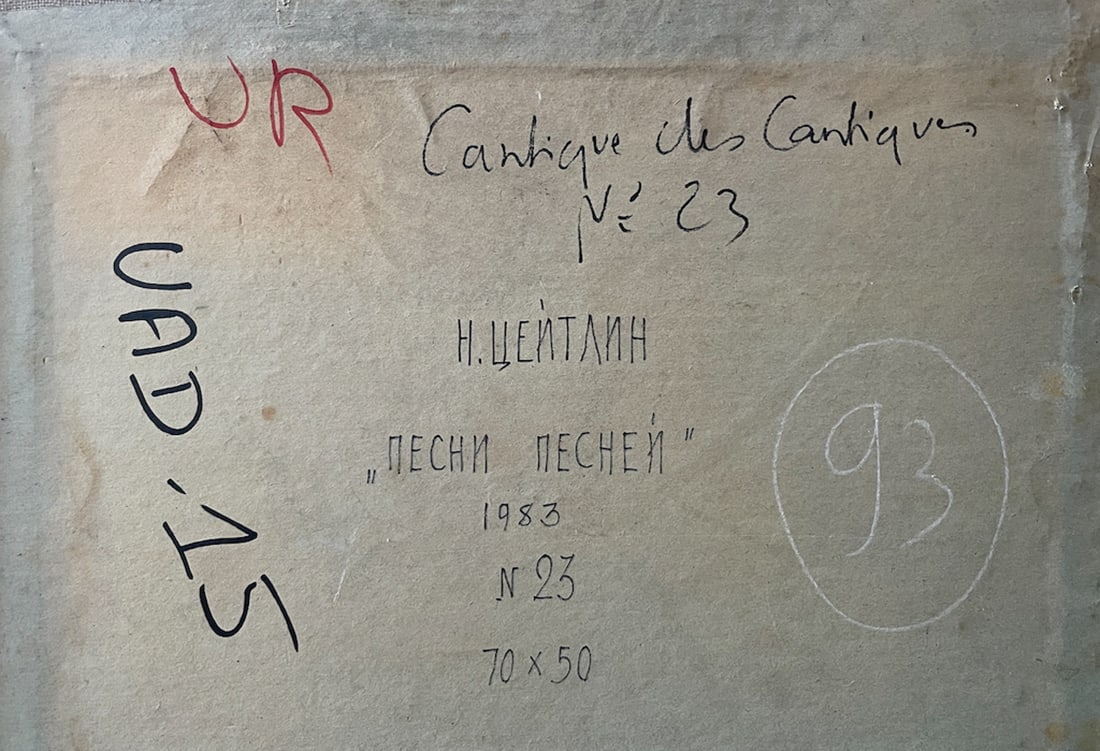 UR
Cantique des Cantiques
N° 23
UAD.15
Н. ЦЕЙТЛИН
„ПЕСНИ ПЕСНЕЙ"
1983
N 23
70 x 50
93